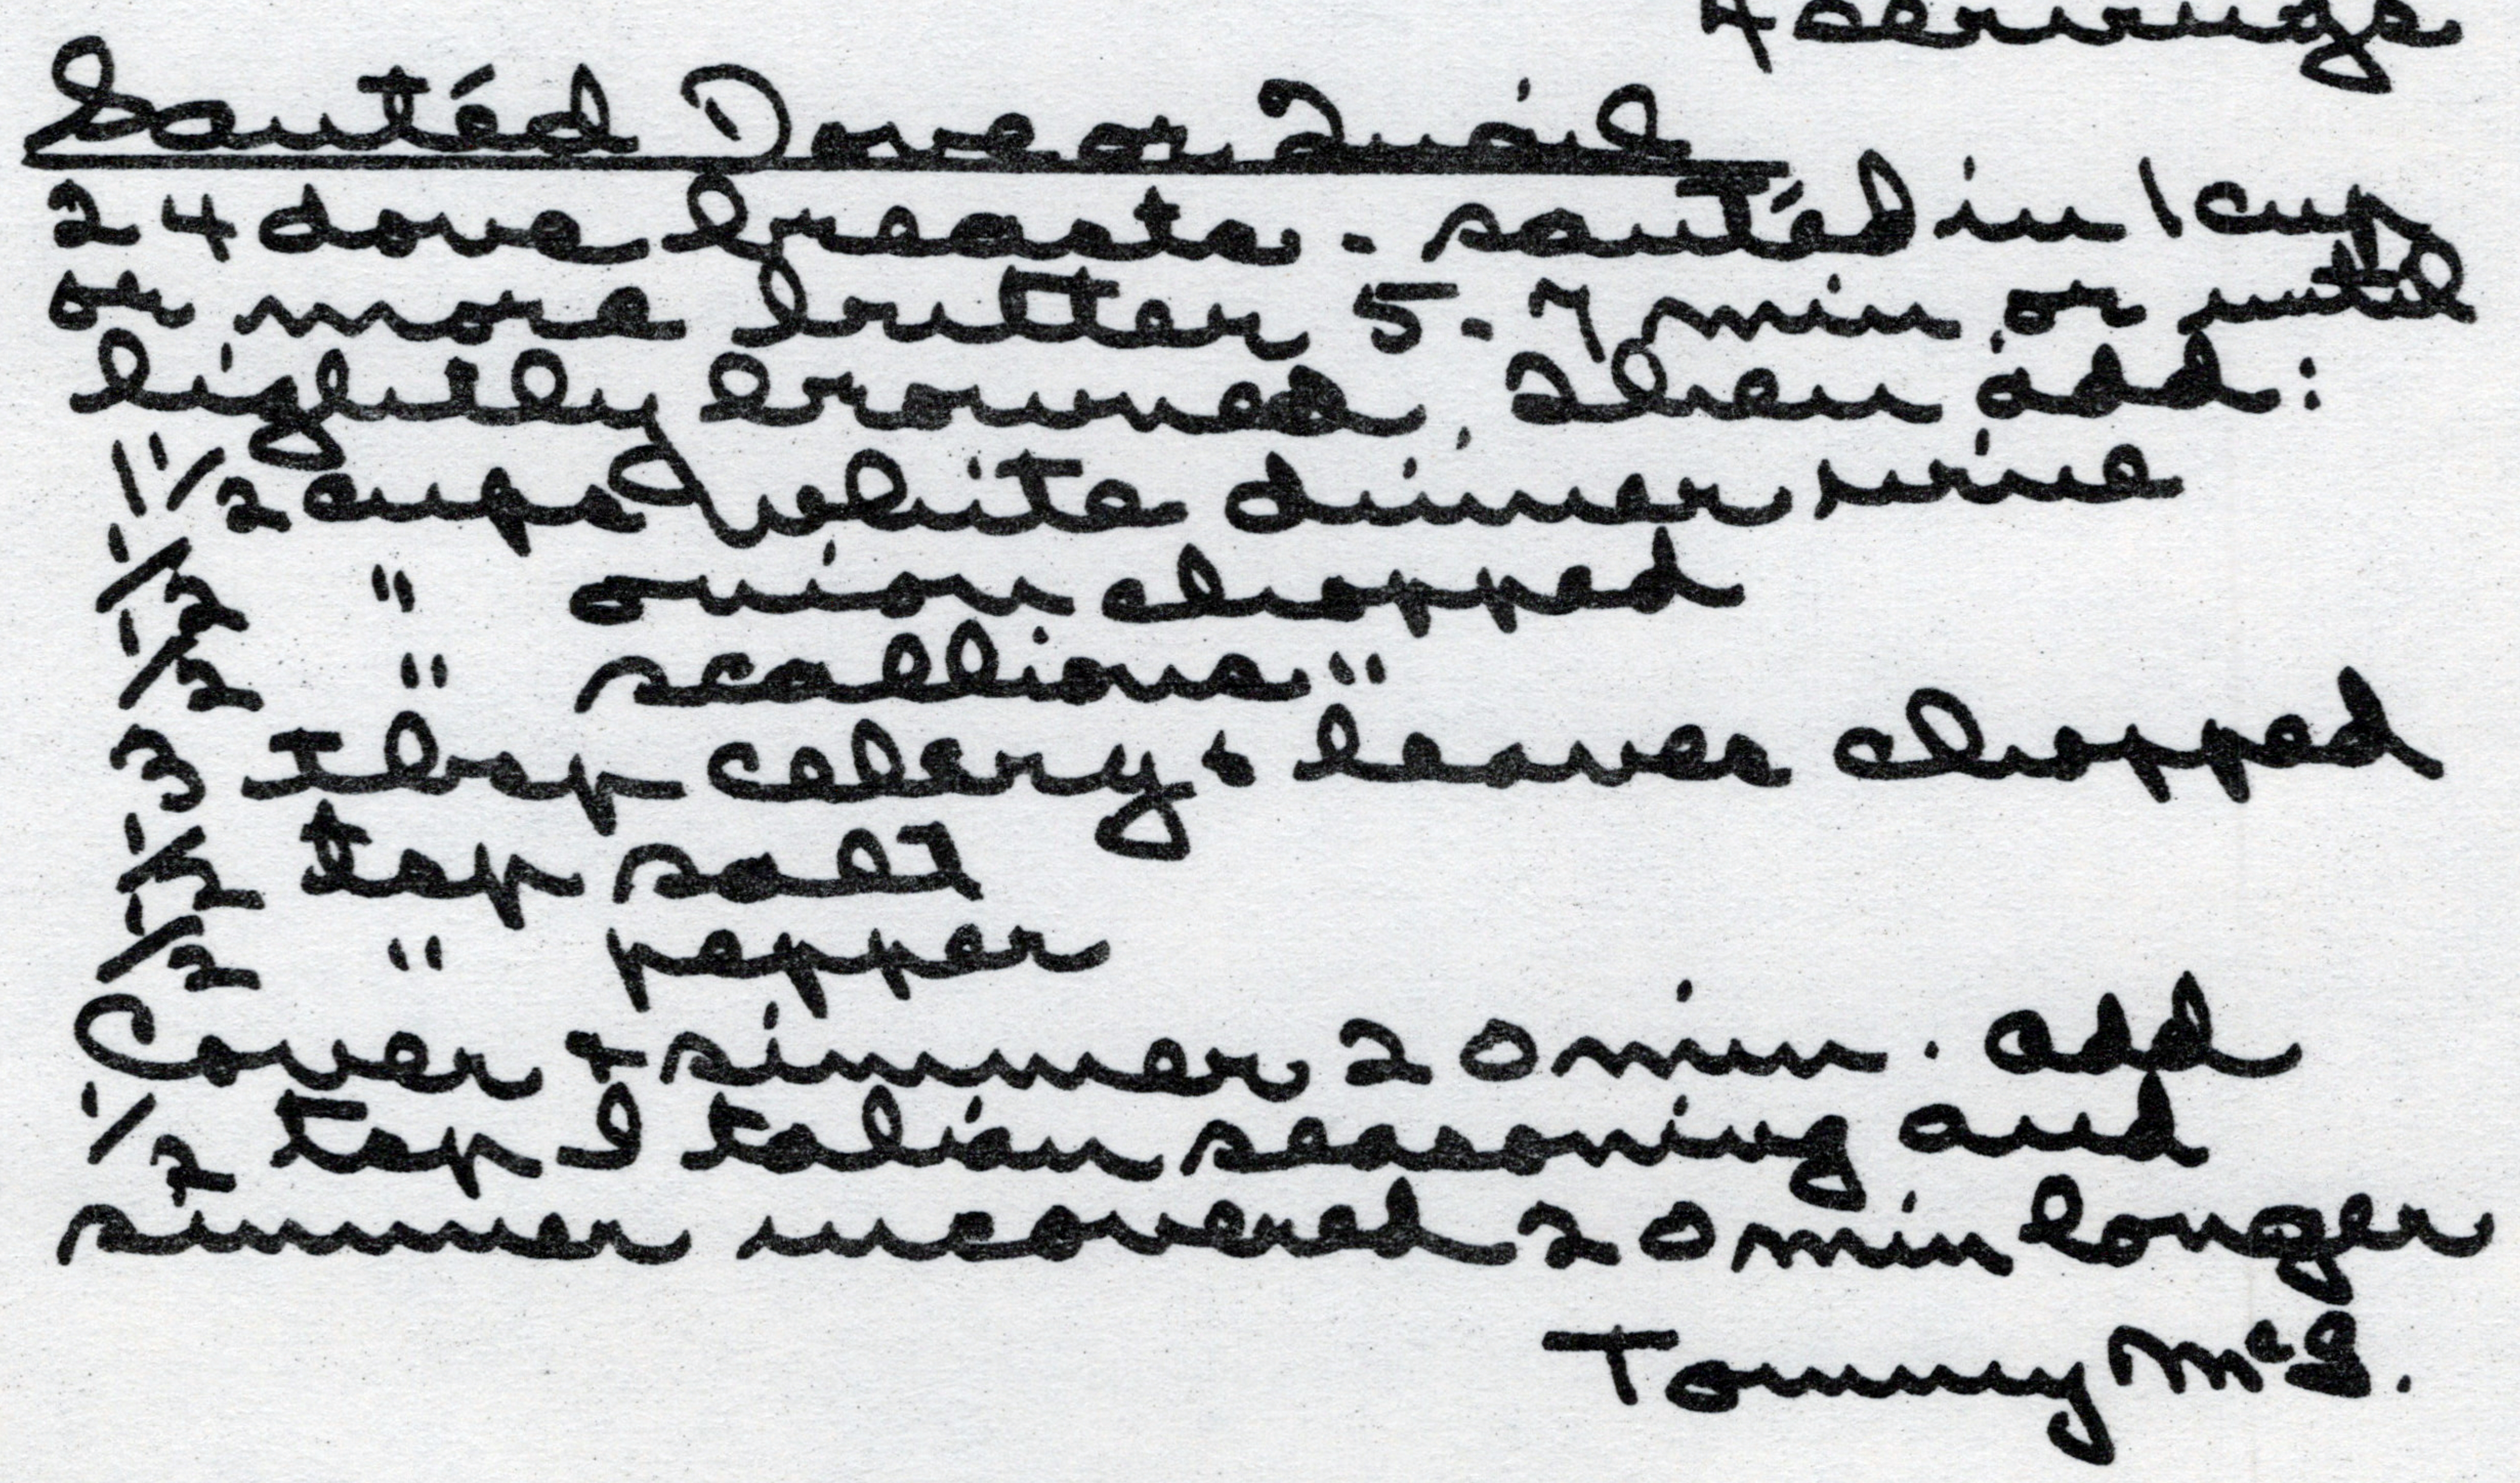 4 servings
Sautéd Dove or Quail
24 dove breasts - sautéd in 1 cup
or more butter 5-7 min or until
lightly browned. Then add:
1 1/2 cups white dinner wine
1/2 " onion chopped
1/2 " scallions "
3 tbsp celery & leaves chopped
1/2 tsp salt
1/2 " pepper
Cover & simmer 20 min. add
1/2 tsp Italian seasoning and
simmer uncovered 20 min longer
Tommy McG.